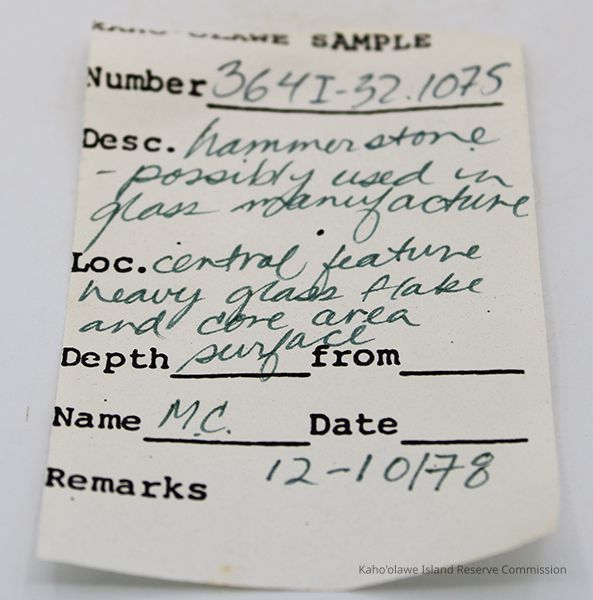 KAHO'OLAWE SAMPLE
Number 364I-32.1075
Desc. hammerstone
- possibly used in
glass manufacture
Loc. central feature
heavy glass flake
and core area
Depth surface from
Name M.C. Date
12-10/78
Remarks
Kaho'olawe Island Reserve Commission